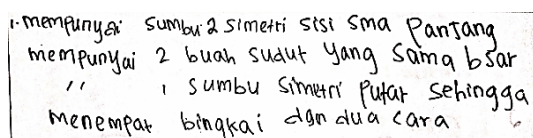 1. mempunyai sumbu 2 simetri sisi sma Panjang
mempunyai 2 buah sudut yang sama bsar
" 1 sumbu simetri putar sehingga
menempat bingkai dgn dua cara